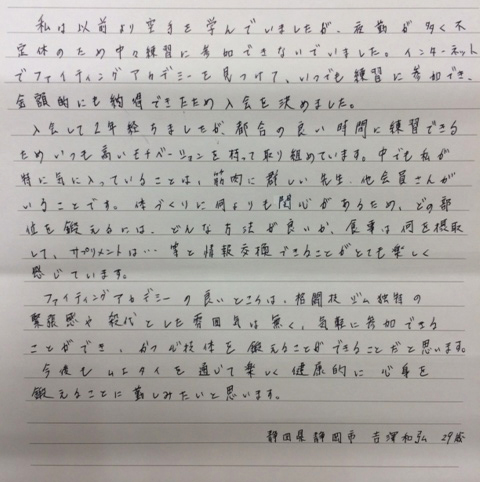 私は以前より空手を学んでいましたが、夜勤が多く不
定休のため中々練習に参加できないでいました。インターネット
でファイティングアカデミーを見つけて、いつでも練習に参加でき、
金額的にも納得できたため入会を決めました。
入会して2年経ちましたが、都合の良い時間に練習できる
ためいつも高いモチベーションを持って取り組めています。中でも私が
特に気に入っていることは、筋肉に詳しい先生、他会員さんが
いることです。体づくりに何よりも関心があるため、どの部
位を鍛えるには、どんな方法が良いか、食事は何を摂取
して、サプリメントは… 等と情報交換できることがとても楽しく
感じています。
ファイティングアカデミーの良いところは、格闘技ジム独特の
緊張感や殺伐とした雰囲気は無く、気軽に参加できる
ことができ、かつ心技体を鍛えることができることだと思います。
今後もムエタイを通じて楽しく健康的に心身を
鍛えることに勤しみたいと思います。
静岡県静岡市 吉澤和弘 29歳